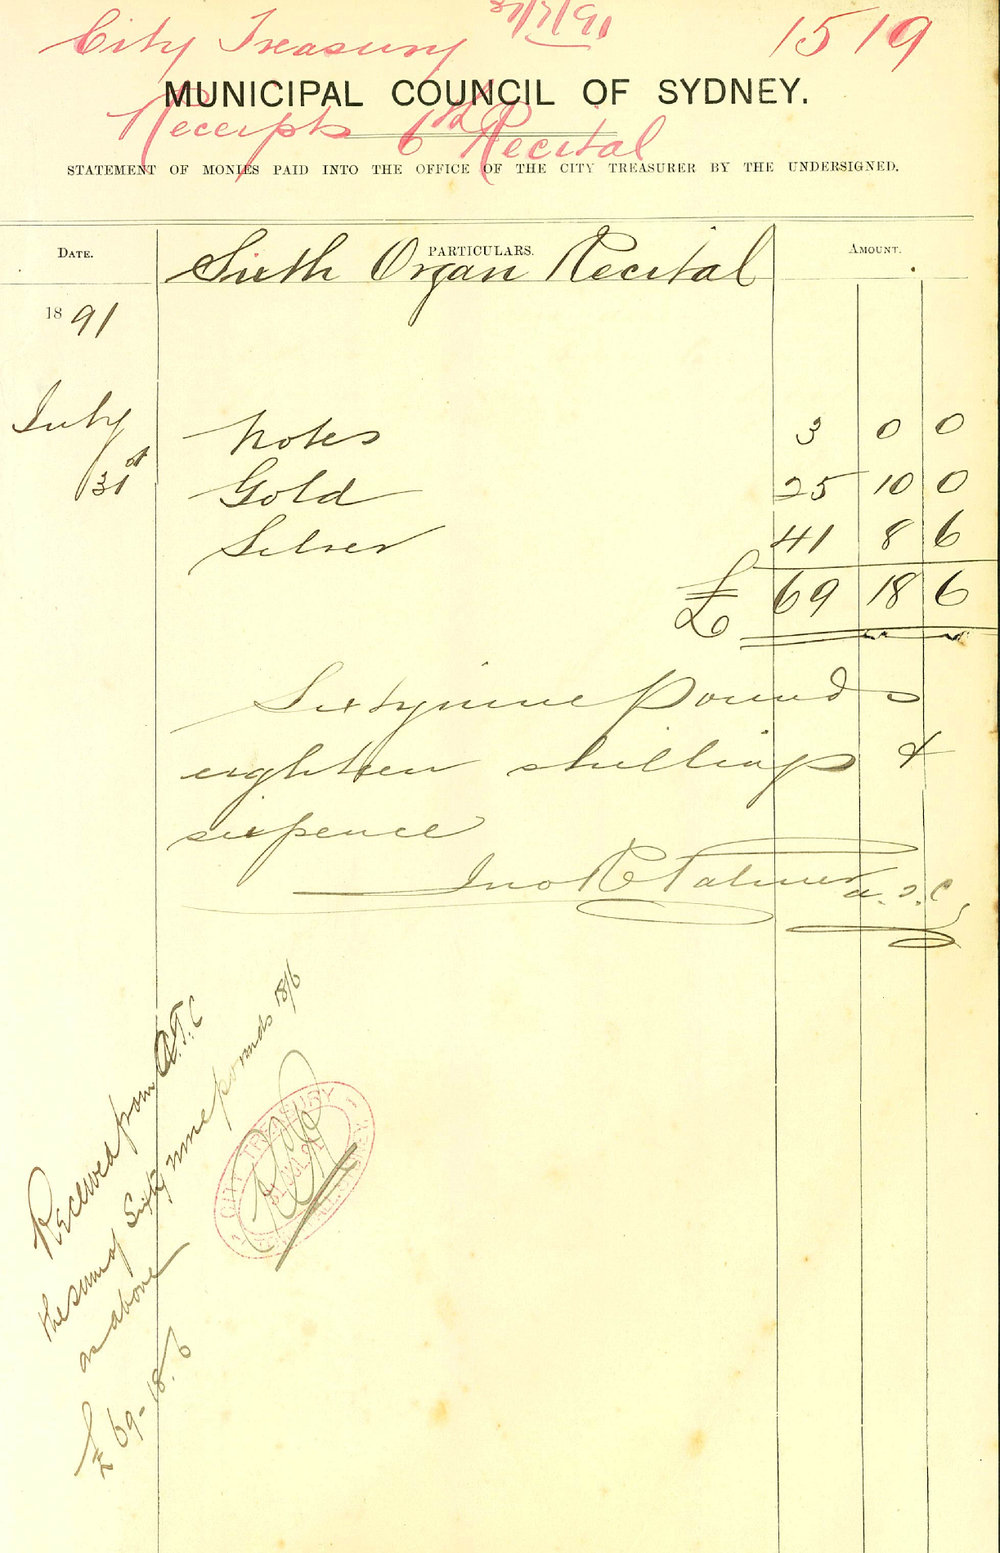 City Treasury 31/7/91 1519
MUNICIPAL COUNCIL OF SYDNEY.
Receipts 6th Recital
STATEMENT OF MONIES PAID INTO THE OFFICE OF THE CITY TREASURER BY THE UNDERSIGNED.
DATE. PARTICULARS. AMOUNT.
Sixth Organ Recital
1891
July Notes 3 0 0
31st Gold 25 10 0
Silver 41 8 6
£ 69 18 6
Sixtynine Pounds
eighteen shillings &
sixpence
Jno R Palmer a.T.C
Received from A.T.C
the sum of Sixty nine pounds 18/6
as above
£69-18.6
CITY TREASURY